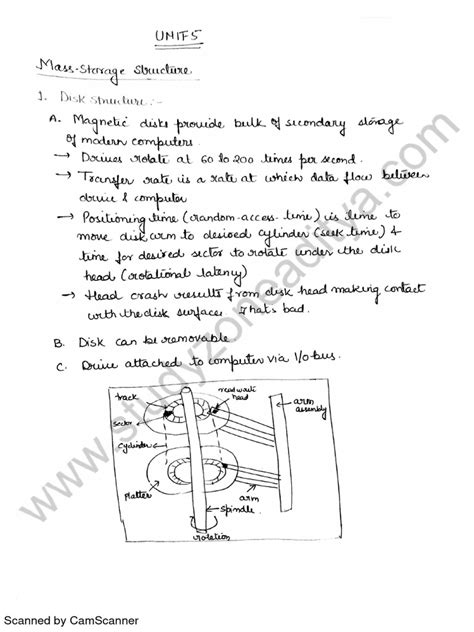 UNIT 5
Mass-Storage Structure
1. Disk Structure:-
A. Magnetic disks provide bulk of secondary storage
of modern computers.
→ Drives rotate at 60 to 200 times per second.
→ Transfer rate is a rate at which data flow between
drive & computer
→ Positioning time (random-access-time) is time to
move disk arm to desired cylinder (seek time) &
time for desired sector to rotate under the disk
head (rotational latency)
→ Head crash results from disk head making contact
with the disk surface. That's bad.
B. Disk can be removable.
C. Drive attached to computer via I/O bus.
track
read write
head
arm
assembly
sector
cylinder
platter
arm
spindle
rotation
www.studyzoneaditya.com
Scanned by CamScanner